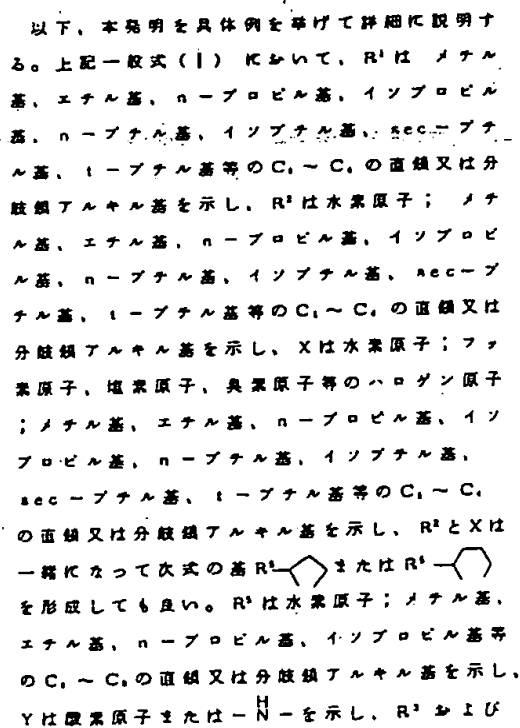 以下、本発明を具体例を挙げて詳細に説明す
る。上記一般式(I)において、R¹は メチル
基、エチル基、n－プロピル基、イソプロピル
基、n－ブチル基、イソブチル基、sec－ブチ
ル基、t－ブチル基等のC₁～C₄の直鎖又は分
岐鎖アルキル基を示し、R²は水素原子； メチ
ル基、エチル基、n－プロピル基、イソプロピ
ル基、n－ブチル基、イソブチル基、sec－ブ
チル基、t－ブチル基等のC₁～C₄の直鎖又は
分岐鎖アルキル基を示し、Xは水素原子；フッ
素原子、塩素原子、臭素原子等のハロゲン原子
；メチル基、エチル基、n－プロピル基、イソ
プロピル基、n－ブチル基、イソブチル基、
sec－ブチル基、t－ブチル基等のC₁～C₄
の直鎖又は分岐鎖アルキル基を示し、R²とXは
一緒になって次式の基R⁵ または R⁵
を形成しても良い。R⁵は水素原子；メチル基、
エチル基、n－プロピル基、イソプロピル基等
のC₁～C₃の直鎖又は分岐鎖アルキル基を示し、
Yは酸素原子または－NH－を示し、R³および